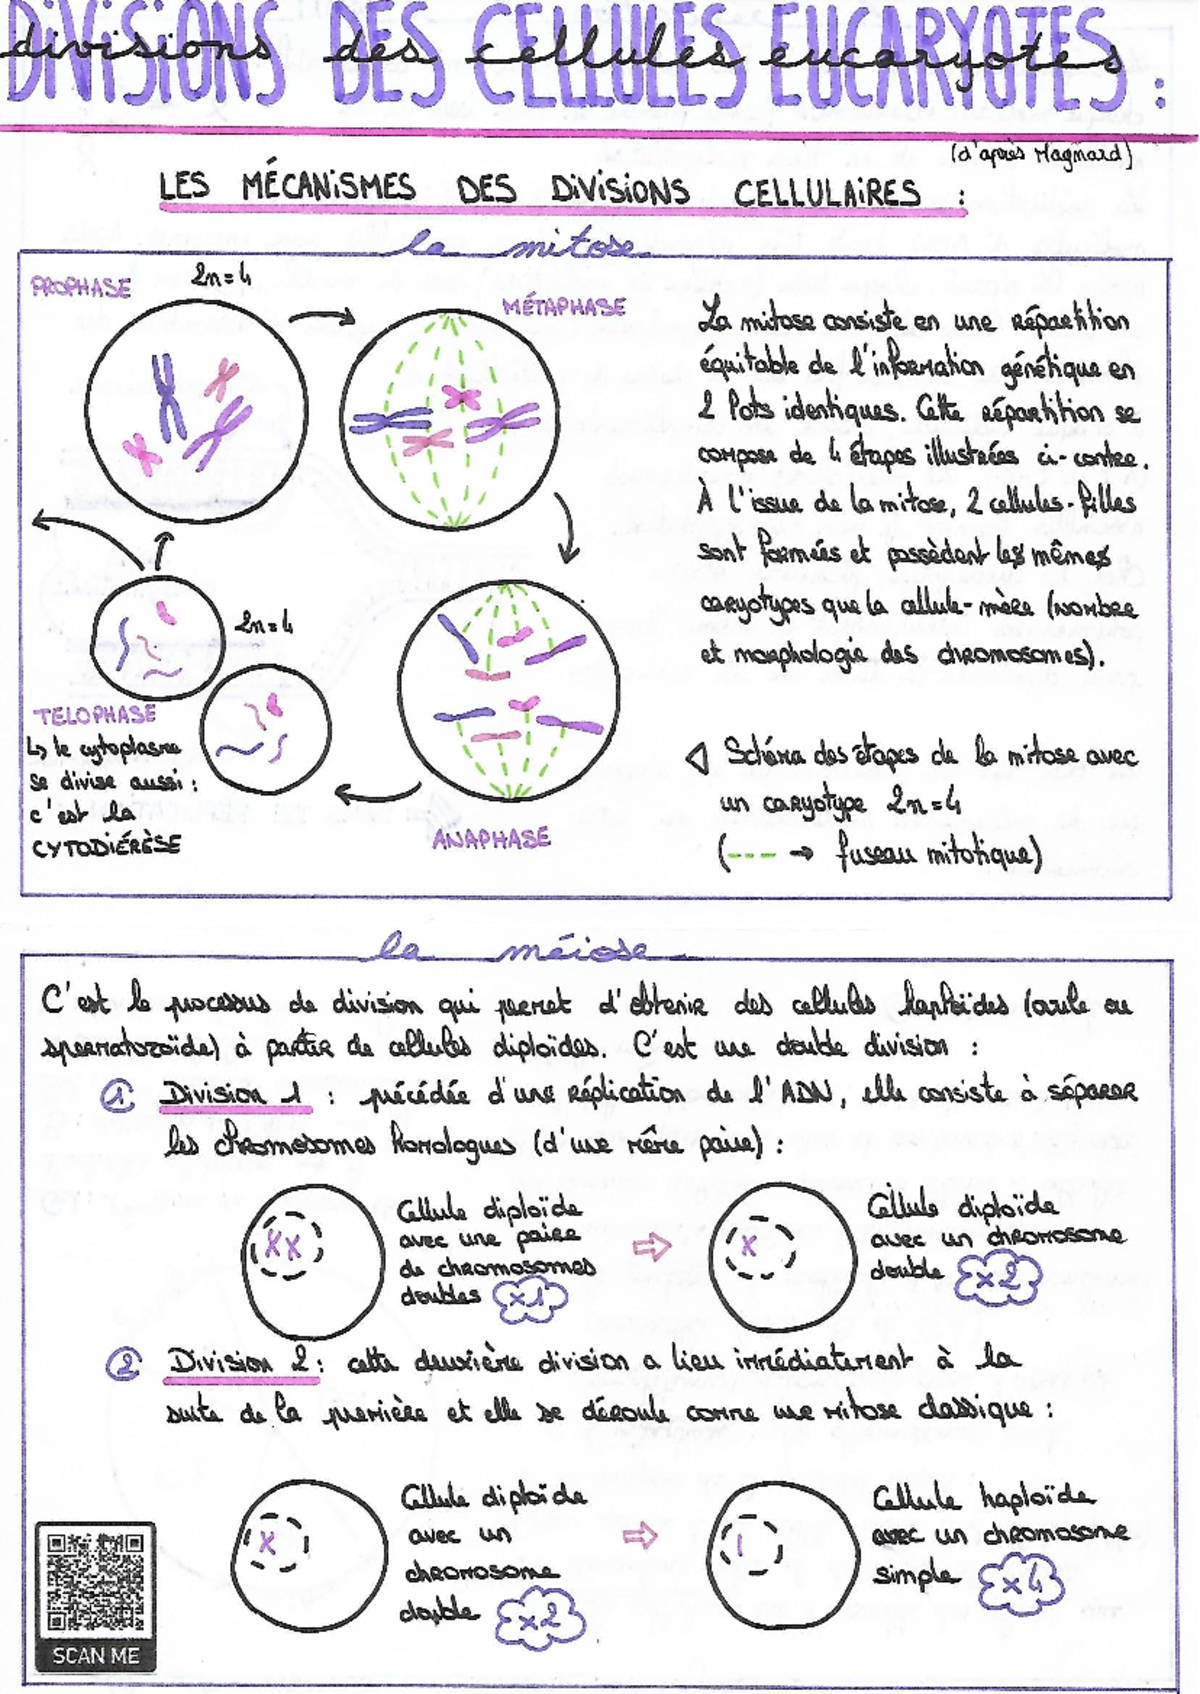 DIVISIONS DES CELLULES EUCARYOTES :
divisions des cellules eucaryotes
(d'après Magnard)
LES MÉCANISMES DES DIVISIONS CELLULAIRES :
la mitose
PROPHASE
2n=4
MÉTAPHASE
La mitose consiste en une répartition
équitable de l'information génétique en
2 lots identiques. Cette répartition se
compose de 4 étapes illustrées ci-contre.
À l'issue de la mitose, 2 cellules-filles
sont formées et possèdent les mêmes
caryotypes que la cellule-mère (nombre
et morphologie des chromosomes).
2n=4
TELOPHASE
↳ le cytoplasme
se divise aussi :
c'est la
CYTODIÉRÈSE
ANAPHASE
◁ Schéma des étapes de la mitose avec
un caryotype 2n=4
(--- → fuseau mitotique)
la méiose
C'est le processus de division qui permet d'obtenir des cellules haploïdes (ovule ou
spermatozoïde) à partir de cellules diploïdes. C'est une double division :
① Division 1 : précédée d'une réplication de l'ADN, elle consiste à séparer
les chromosomes homologues (d'une même paire) :
Cellule diploïde
avec une paire
de chromosomes
doubles x1
⇨
Cellule diploïde
avec un chromosome
double x2
② Division 2 : cette deuxième division a lieu immédiatement à la
suite de la première et elle se déroule comme une mitose classique :
Cellule diploïde
avec un
chromosome
double x2
⇨
Cellule haploïde
avec un chromosome
simple x4
SCAN ME